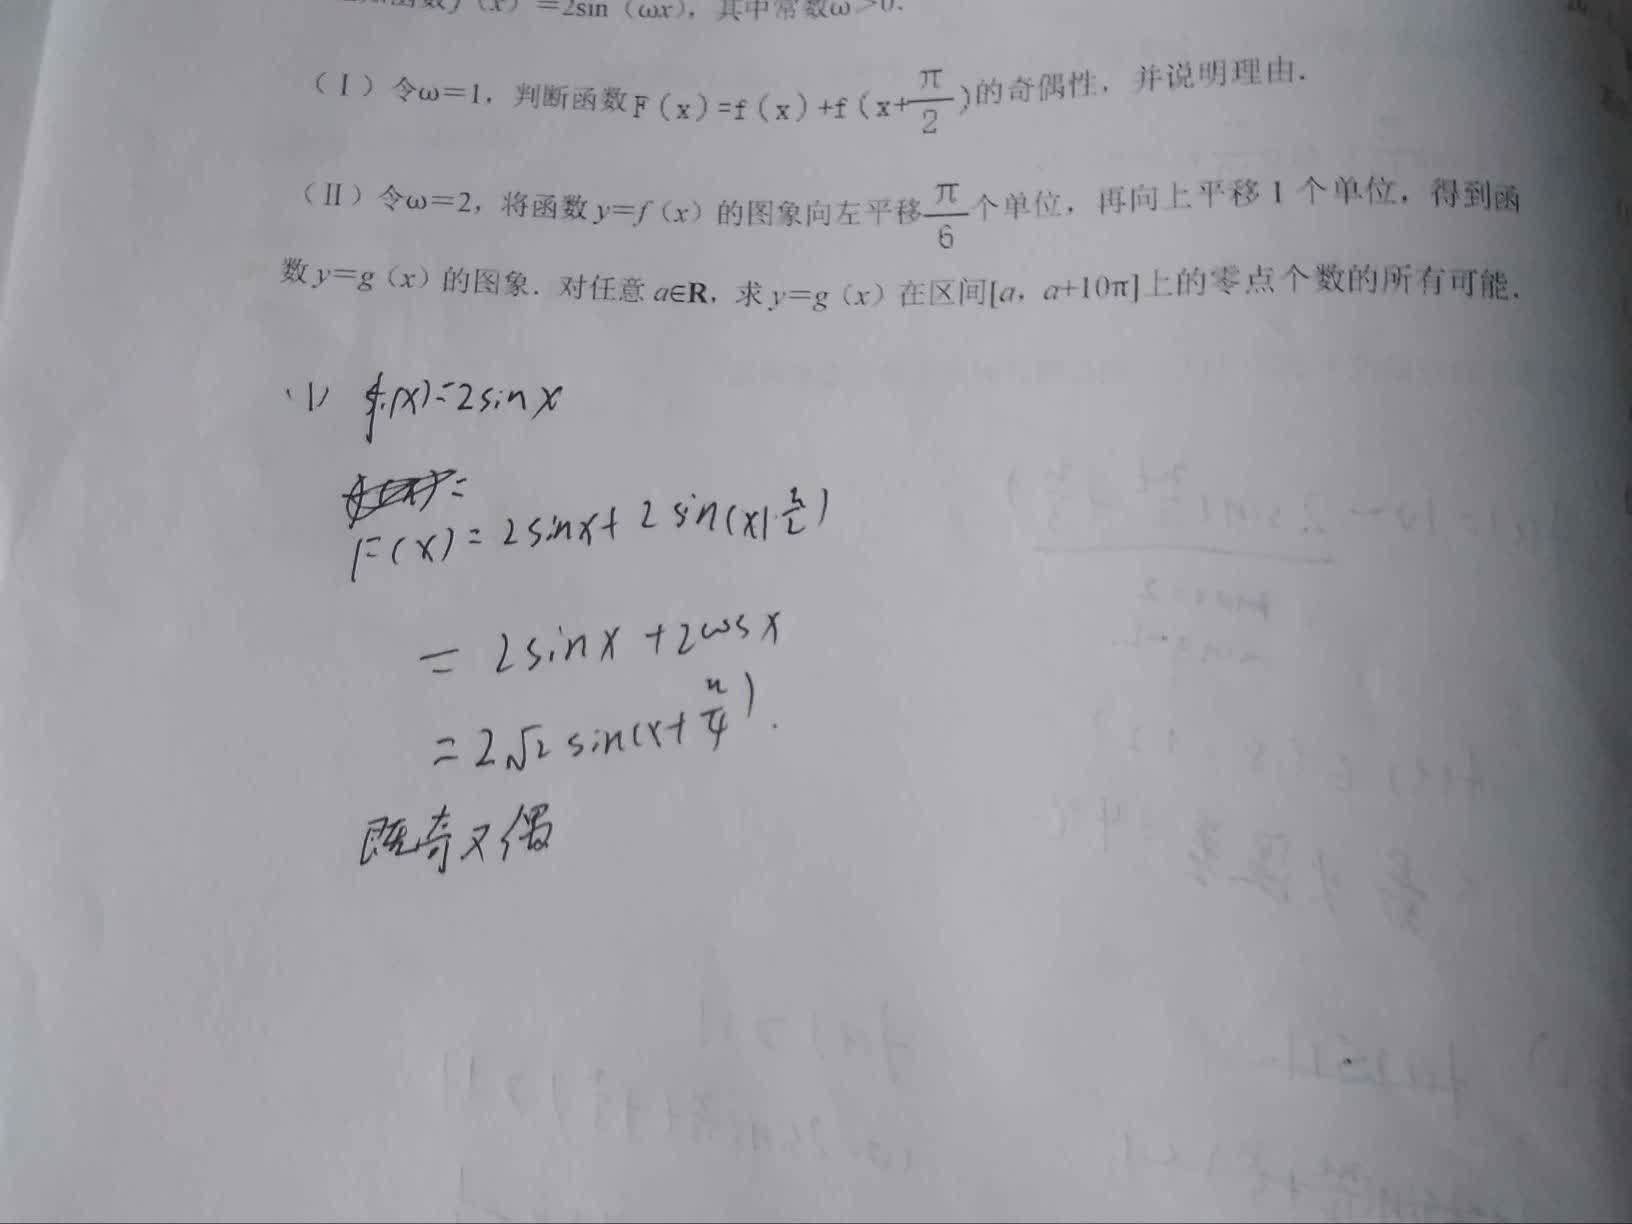 f(x)=2sin(ωx)，其中常数ω>0．
(Ⅰ)令ω=1，判断函数F(x)=f(x)+f(x+π/2)的奇偶性，并说明理由．
(Ⅱ)令ω=2，将函数y=f(x)的图象向左平移π/6个单位，再向上平移1个单位，得到函
数y=g(x)的图象．对任意a∈R，求y=g(x)在区间[a，a+10π]上的零点个数的所有可能．
(1) f(x)=2sinx
F(x)=2sinx+2sin(x+π/2)
=2sinx+2cosx
=2√2sin(x+π/4).
既奇又偶